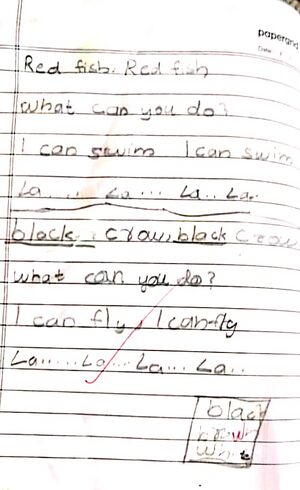 paperand
Date
Red fish. Red fish
What can you do?
I can swim I can swim
La .... La .... La .. La..
black crow, black crow
what can you do?
I can fly, I can fly
La...... La... La... La..
black
brown
white